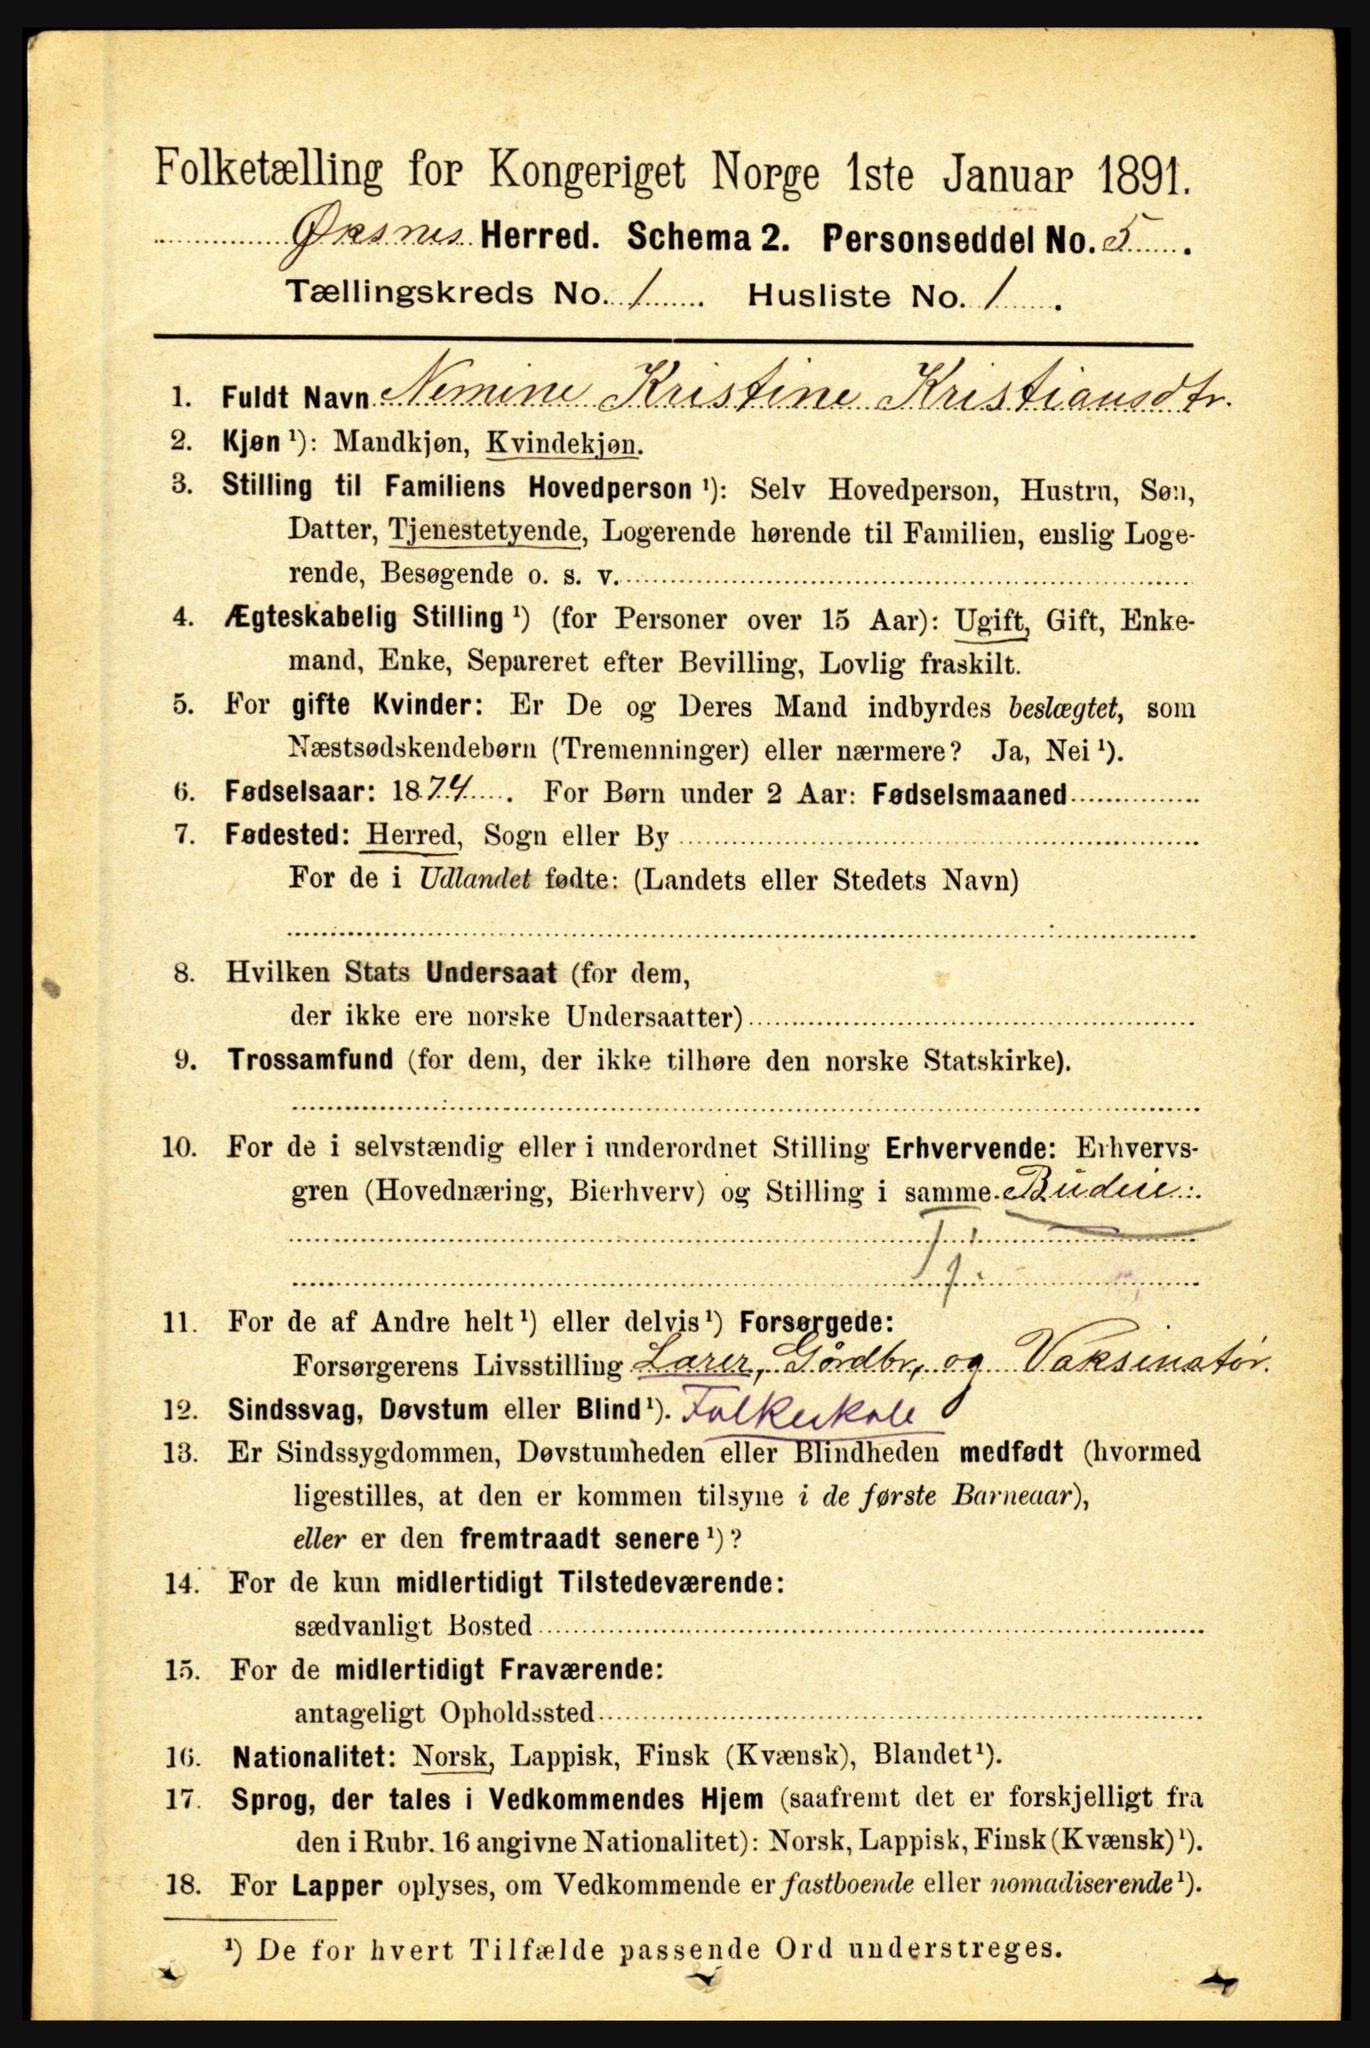 Folketælling for Kongeriget Norge 1ste Januar 1891.
Øksnes Herred. Schema 2. Personseddel No. 5.
Tællingskreds No. 1. Husliste No. 1.
1. Fuldt Navn Nemine Kristine Kristiansdtr.
2. Kjøn ¹): Mandkjøn, Kvindekjøn.
3. Stilling til Familiens Hovedperson ¹): Selv Hovedperson, Hustru, Søn,
Datter, Tjenestetyende, Logerende hørende til Familien, enslig Loge-
rende, Besøgende o. s. v.
4. Ægteskabelig Stilling ¹) (for Personer over 15 Aar): Ugift, Gift, Enke-
mand, Enke, Separeret efter Bevilling, Lovlig fraskilt.
5. For gifte Kvinder: Er De og Deres Mand indbyrdes beslægtet, som
Næstsødskendebørn (Tremenninger) eller nærmere? Ja, Nei ¹).
6. Fødselsaar: 1874. For Børn under 2 Aar: Fødselsmaaned
7. Fødested: Herred, Sogn eller By
For de i Udlandet fødte: (Landets eller Stedets Navn)
8. Hvilken Stats Undersaat (for dem,
der ikke ere norske Undersaatter)
9. Trossamfund (for dem, der ikke tilhøre den norske Statskirke).
10. For de i selvstændig eller i underordnet Stilling Erhvervende: Erhvervs-
gren (Hovednæring, Bierhverv) og Stilling i samme. Budeie.
Tj
11. For de af Andre helt ¹) eller delvis ¹) Forsørgede:
Forsørgerens Livsstilling Lærer, Gårdbr, og Vaksinatør.
12. Sindssvag, Døvstum eller Blind ¹). Folkeskole
13. Er Sindssygdommen, Døvstumheden eller Blindheden medfødt (hvormed
ligestilles, at den er kommen tilsyne i de første Barneaar),
eller er den fremtraadt senere ¹)?
14. For de kun midlertidigt Tilstedeværende:
sædvanligt Bosted
15. For de midlertidigt Fraværende:
antageligt Opholdssted
16. Nationalitet: Norsk, Lappisk, Finsk (Kvænsk), Blandet ¹).
17. Sprog, der tales i Vedkommendes Hjem (saafremt det er forskjelligt fra
den i Rubr. 16 angivne Nationalitet): Norsk, Lappisk, Finsk (Kvænsk) ¹).
18. For Lapper oplyses, om Vedkommende er fastboende eller nomadiserende ¹).
¹) De for hvert Tilfælde passende Ord understreges.